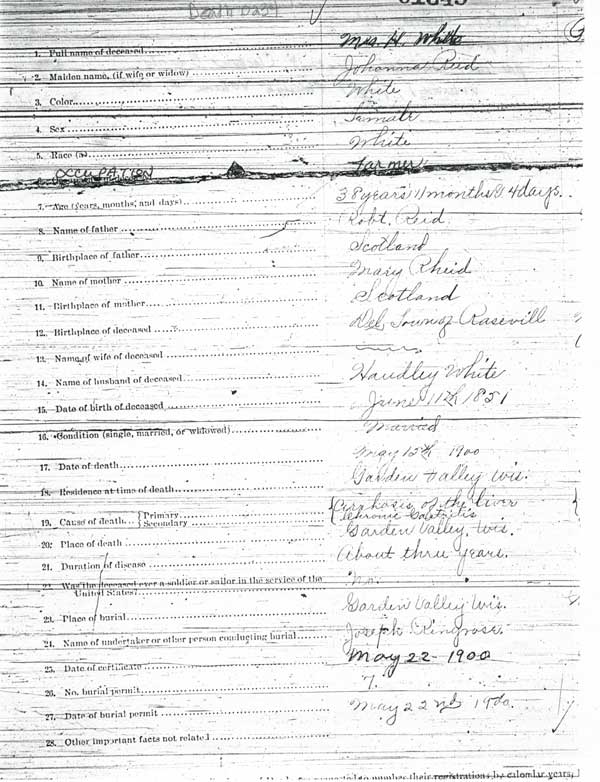 Death 0234
01649
1. Full name of deceased Mrs H. White
2. Maiden name, (if wife or widow) Johanna Reid
3. Color White
4. Sex Female
5. Race (a) White
OCCUPATION Farmer
7. Age (years, months, and days) 38 years 11 months & 4 days.
8. Name of father Robt. Reid
9. Birthplace of father Scotland
10. Name of mother Mary Rheid
11. Birthplace of mother Scotland
12. Birthplace of deceased Del, Town of Rasevill
13. Name of wife of deceased
14. Name of husband of deceased Handley White
15. Date of birth of deceased June 11th 1851
16. Condition (single, married, or widowed) Married
17. Date of death May 15th 1900
18. Residence at time of death Garden Valley Wis.
19. Cause of death. { Primary Cirrhosis of the liver
Secondary Chronic
20. Place of death Garden Valley, Wis.
21. Duration of disease About three years.
22. Was the deceased ever a soldier or sailor in the service of the
United States? No.
23. Place of burial Garden Valley Wis.
24. Name of undertaker or other person conducting burial Joseph Ringrose
25. Date of certificate May 22 - 1900
26. No. burial permit 7.
27. Date of burial permit May 22nd 1900.
28. Other important facts not related
to number their registrations by calendar years;